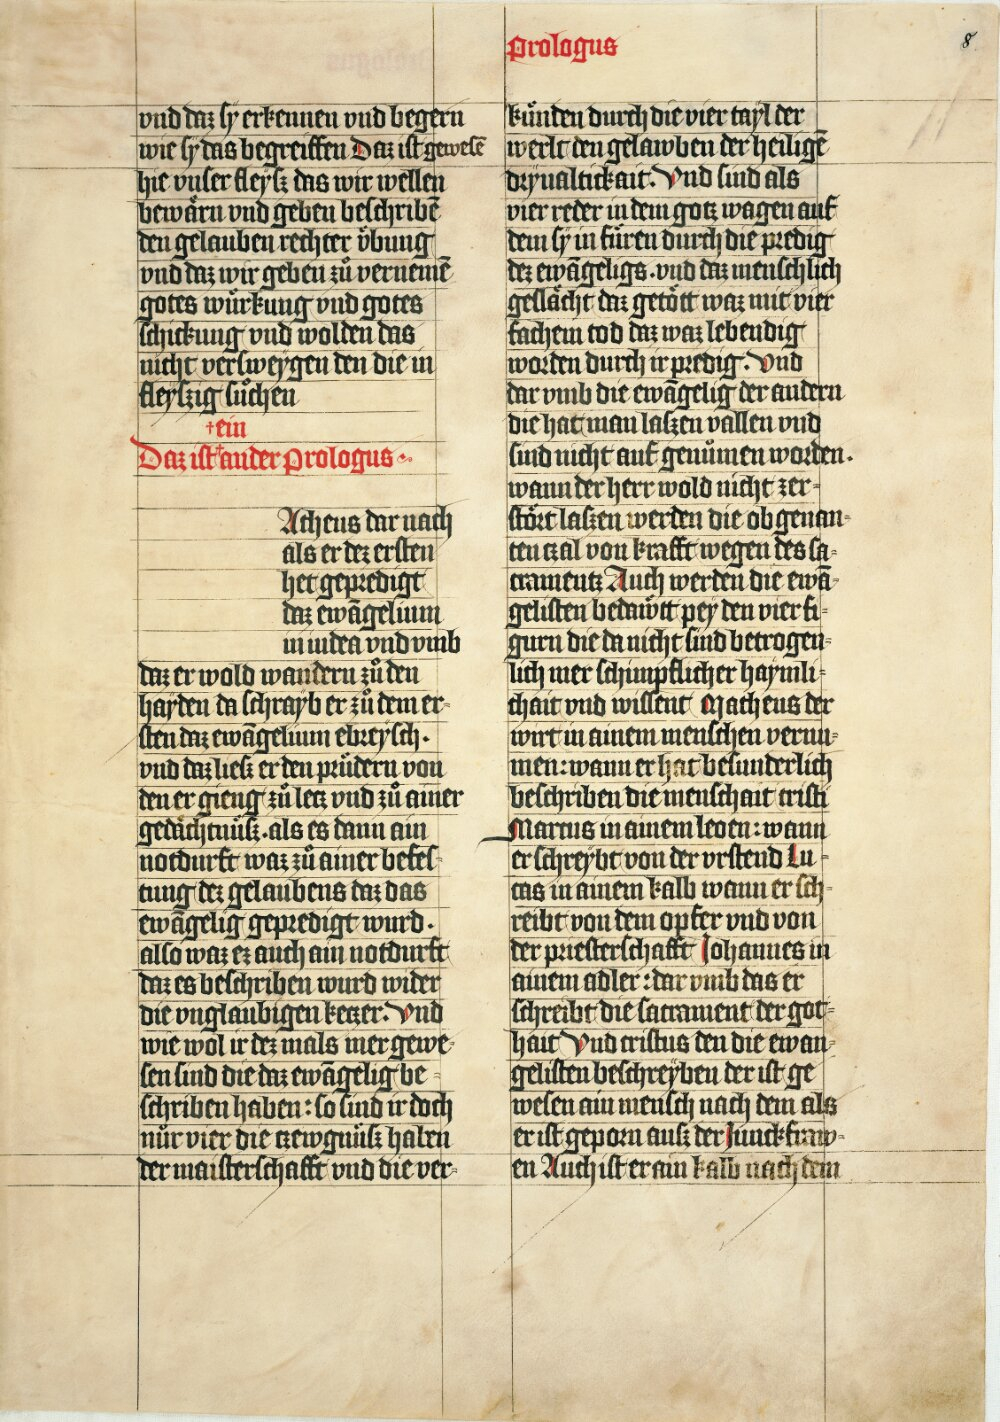 Prologus
8
vnd daz sy erkennen vnd begern
wie sy das begreiffen Daz ist gewesē
hie vnser fleysz das wir wellen
bewårn vnd geben beschribē
den gelauben rechter v̊bung
vnd daz wir geben zů vernemē
gotes wůrkung vnd gotes
schickung vnd wolden das
nicht versweygen den die in
fleyszig sůchen
†ein
Daz ist †ander Prologus
Atheus dar nach
als er dez ersten
het gepredigt
daz ewāgelium
in iudea vnd vmb
daz er wold wandern zů den
hayden da schrayb er zů dem er-
sten daz ewāgelium ebreysch.
vnd daz liesz er den průdern von
den er gieng zů letz vnd zů ainer
gedåchtnůsz. als es dann ain
notdurft waz zů ainer befes-
tung dez gelaubens daz das
ewāgelig gepredigt wurd.
also waz ez auch ain notdurft
daz es beschriben wurd wider
die vnglaubigen ketzer. Vnd
wie wol ir dez mals mer gewe-
sen sind die daz ewāgelig be-
schriben haben: so sind ir doch
nůr vier die tzewgnůsz haben
der maisterschafft vnd die ver-
kůnden durch die vier tayl der
werlt den gelawben der heiligē
dryualtickait. Vnd sind als
vier reder in dem gotz wagen auf
dem sy in fůren durch die predig
dez ewāgeligs. vnd daz menschlich
geslåcht daz getött waz mit vier
fachem tod daz waz lebendig
worden durch ir predig. Vnd
dar vmb die ewāgelig der andern
die hat man laszen vallen vnd
sind nicht auf genůmen worden.
wann der herr wold nicht zer-
stört laszen werden die ob genan-
ten tzal von krafft wegen des sa-
cramentz Auch werden die ewā-
gelisten bedawtt pey den vier fi-
gurn die da nicht sind betrogen-
lich mer schimpflicher haymli-
chait vnd wissent Matheus der
wirt in ainem menschen vernu-
men: wann er hat besunderlich
beschriben die menschait cristi
Marcus in ainem leoen: wann
er schreybt von der vrstend Lu-
cas in ainem kalb wann er sch-
reibt von dem opfer vnd von
der priesterschafft Johannes in
ainem adler: dar vmb das er
schreibt die sacrament der got-
hait Vnd cristus den die ewan-
gelisten beschreyben der ist ge
wesen ain mensch nach dem als
er ist geporn ausz der Junckfraw-
en Auch ist er ain kalb nach dem